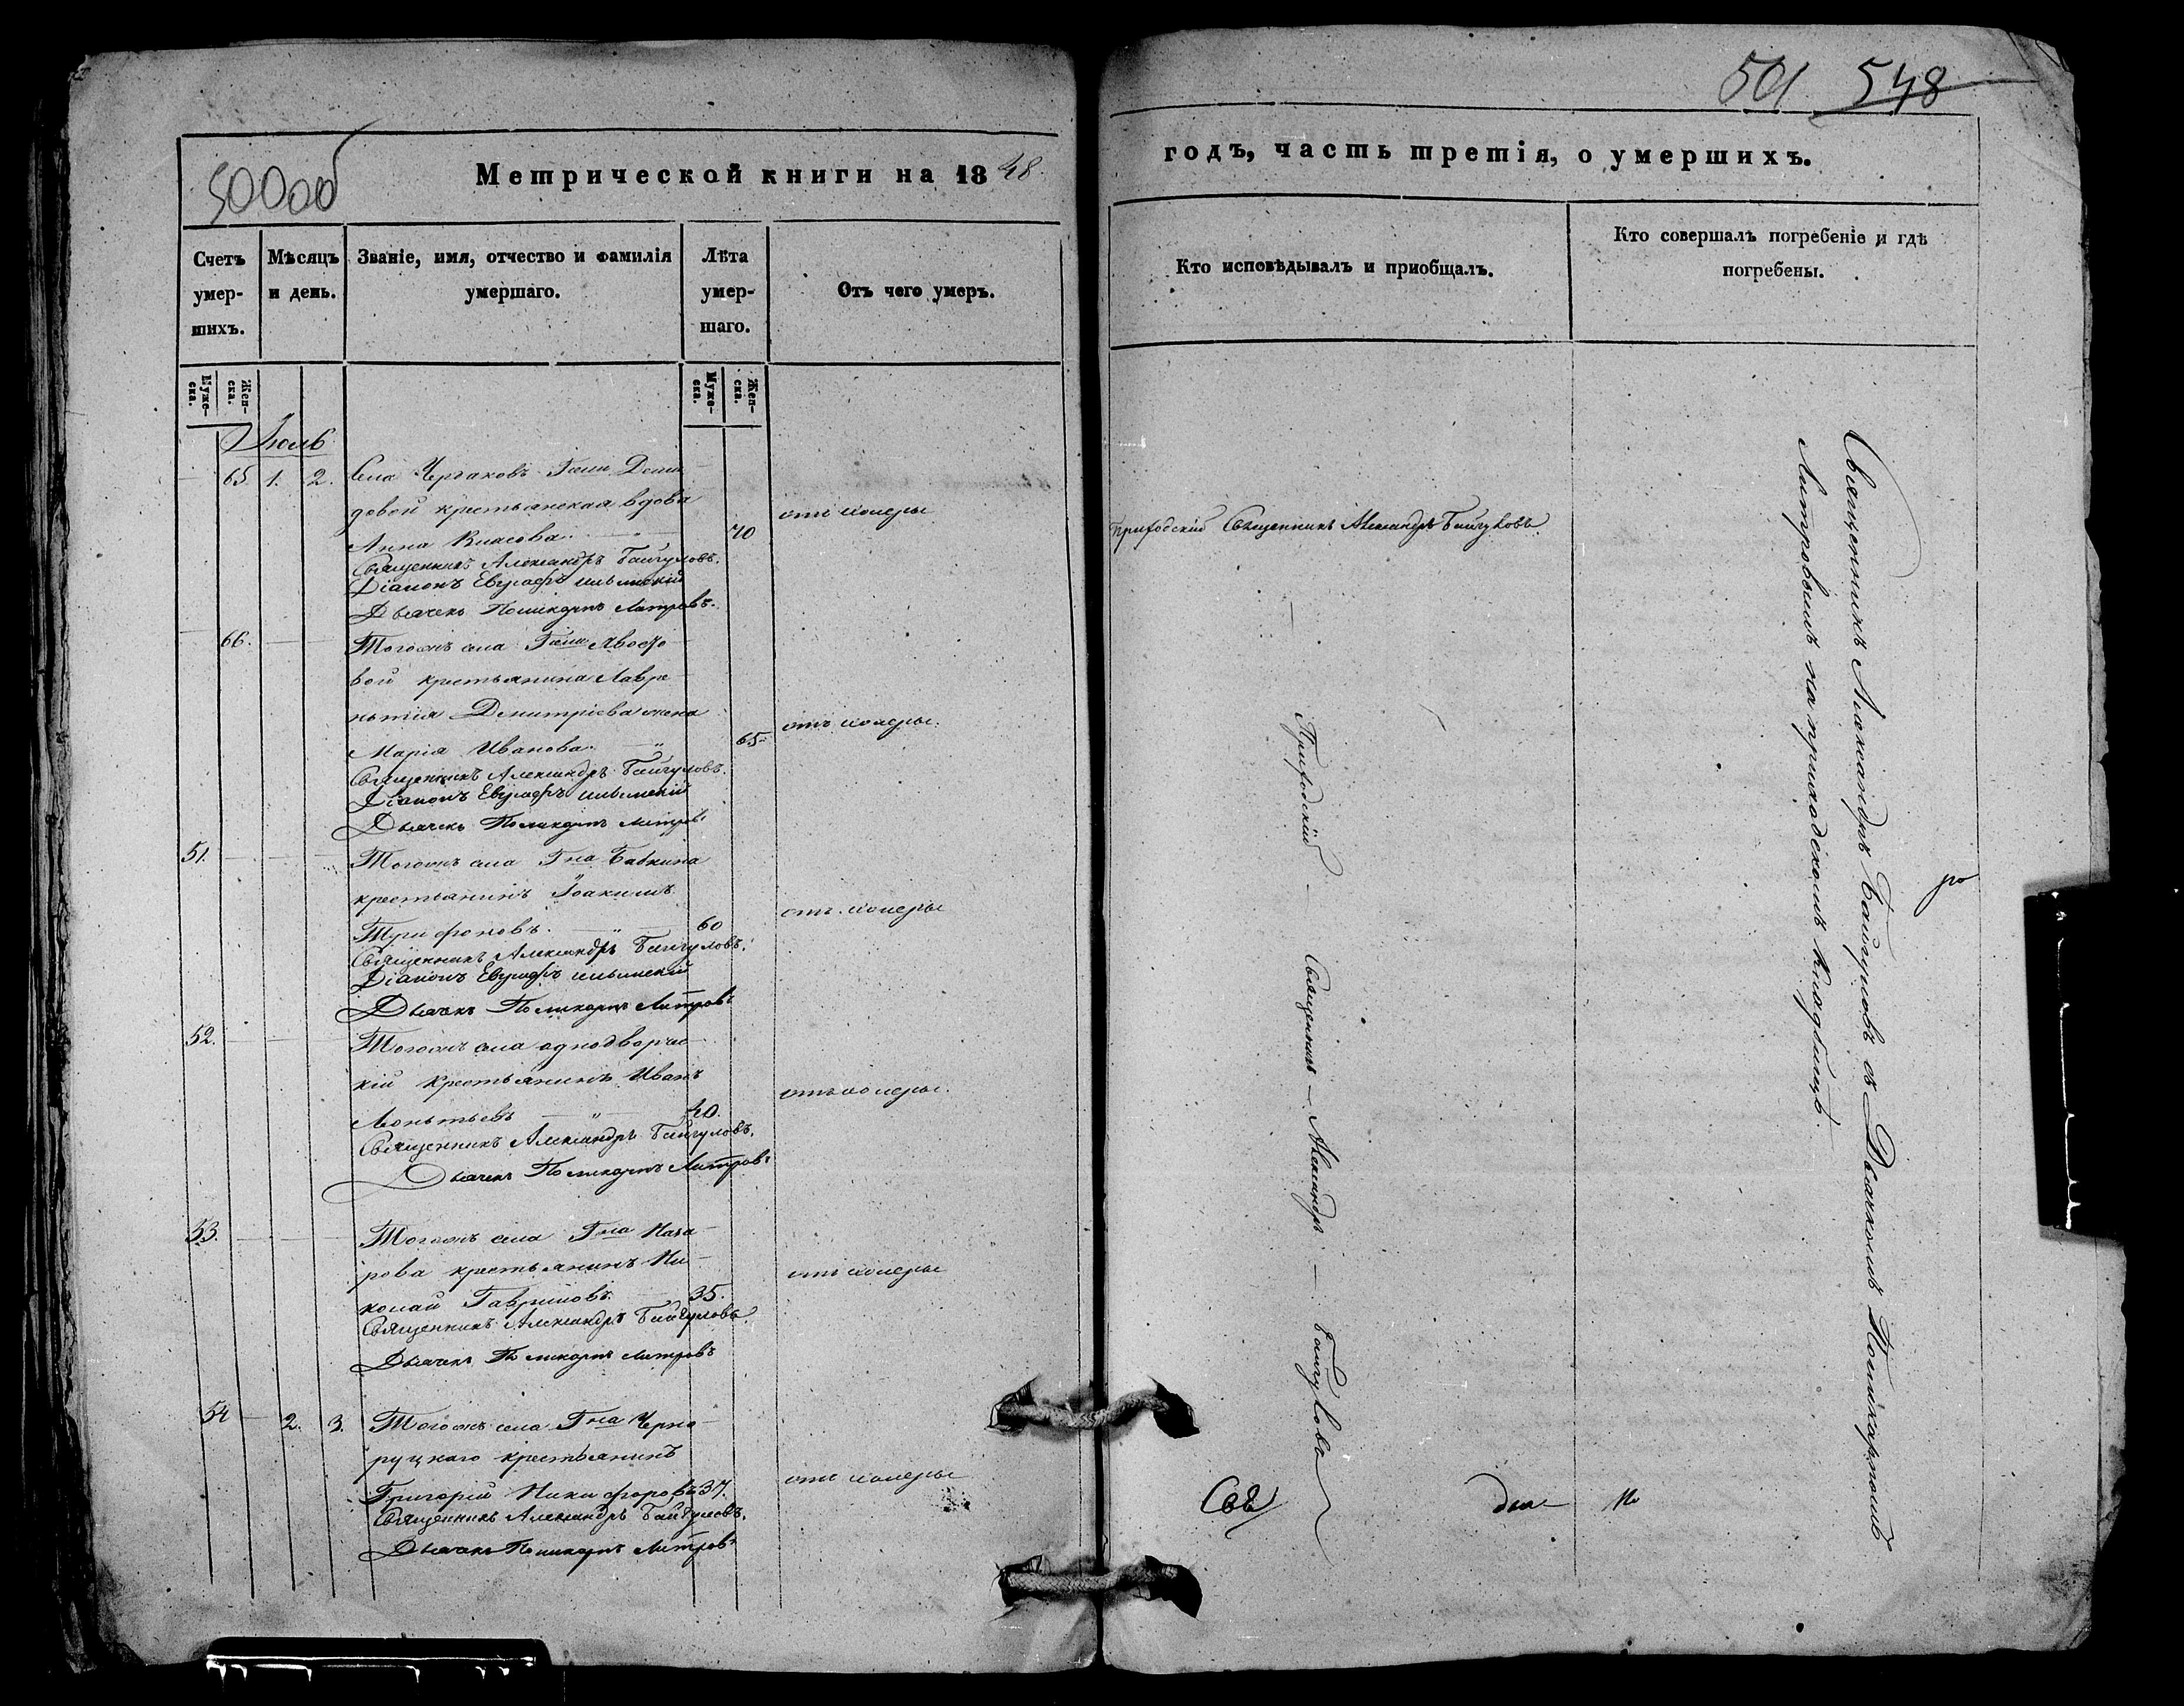 501 548
500 об
Метрической книги на 1848.
годъ, часть третія, о умершихъ.
Счетъ умер-шихъ.
Мѣсяцъ и день.
Званіе, имя, отчество и фамилія умершаго.
Лѣта умер-шаго.
Отъ чего умеръ.
Кто исповѣдывалъ и приобщалъ.
Кто совершалъ погребеніе и гдѣ погребены.
Муже-ска.
Жен-ска.
Муже-ска.
Жен-ска.
Іюль
65. 1. 2. Села Чердаковъ Гжи Деми
довой крестьянская вдова
отъ холеры
Анна Власова. 70
Приходскій Священникъ Александръ Байгуловъ
Священникъ Александръ Байгуловъ.
Діаконъ Евграфъ Ильминскій
Дьячекъ Поликарпъ Литровъ.
66. Тогожъ села Гжи
вой крестьянина Лавре
нтія Димитріева жена
отъ холеры.
Марія Иванова. 65
Священникъ Александръ Байгуловъ.
Діаконъ Евграфъ Ильминскій
Дьячекъ Поликарпъ Литровъ
51. Тогожъ села Гна Бабкина
крестьянинъ Іоакимъ
отъ холеры
Трифоновъ. 60
Священникъ Александръ Байгуловъ.
Діаконъ Евграфъ Ильминскій
Дьячекъ Поликарпъ Литровъ
52. Тогожъ села однодворче
кій крестьянинъ Иванъ
отъ холеры.
Леонтьевъ 40.
Священникъ Александръ Байгуловъ.
Дьячекъ Поликарпъ Литровъ
53. Тогожъ села Гна Наза
рова крестьянинъ Ни
отъ холеры
колай Гавриловъ. 35.
Священникъ Александръ Байгуловъ.
Дьячекъ Поликарпъ Литровъ
54 2. 3. Тогожъ села Гна Черно
руцкаго крестьянинъ
отъ холеры
Григорій Никифоровъ 37.
Священникъ Александръ Байгуловъ.
Дьячекъ Поликарпъ Литровъ
Приходскій Священникъ Александръ Байгуловъ
Священникъ Александръ Байгуловъ съ Дьячкомъ Поликарпомъ
Литровымъ на приходскомъ кладбищѣ